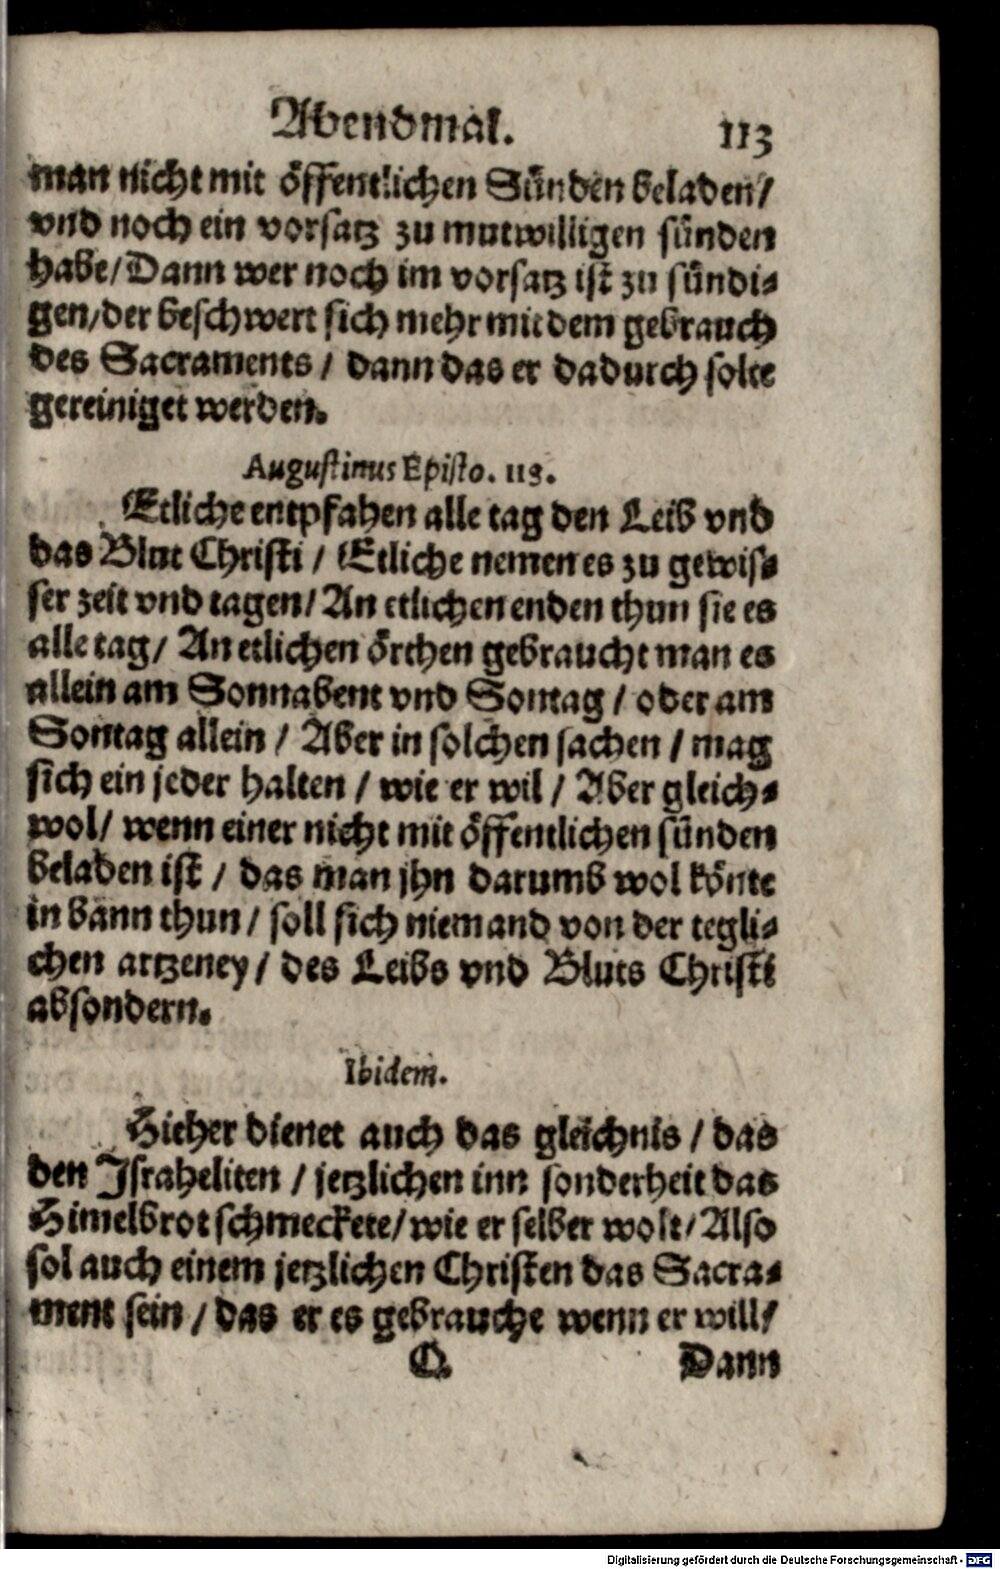 Abendmal. 113
man nicht mit öffentlichen Sünden beladen/
vnd noch ein vorsatz zu mutwilligen sünden
habe/Dann wer noch im vorsatz ist zu sündi-
gen/der beschwert sich mehr mit dem gebrauch
des Sacraments / dann das er dadurch solte
gereiniget werden.
Augustinus Episto. 118.
Etliche entpfahen alle tag den Leib vnd
das Blut Christi / Etliche nemen es zu gewis-
ser zeit vnd tagen/ An etlichen enden thun sie es
alle tag/ An etlichen örthen gebraucht man es
allein am Sonnabent vnd Sontag / oder am
Sontag allein / Aber in solchen sachen / mag
sich ein jeder halten / wie er wil / Aber gleich-
wol/ wenn einer nicht mit öffentlichen sünden
beladen ist / das man jhn darumb wol könte
in bann thun / soll sich niemand von der tegli-
chen artzeney / des Leibs vnd Bluts Christi
absondern.
Ibidem.
Hieher dienet auch das gleichnis / das
den Israheliten / jetzlichen inn sonderheit das
Himelbrot schmeckete/ wie er selber wolt/ Also
sol auch einem jetzlichen Christen das Sacra-
ment sein / das er es gebrauche wenn er will/
Q Dann
Digitalisierung gefördert durch die Deutsche Forschungsgemeinschaft - DFG